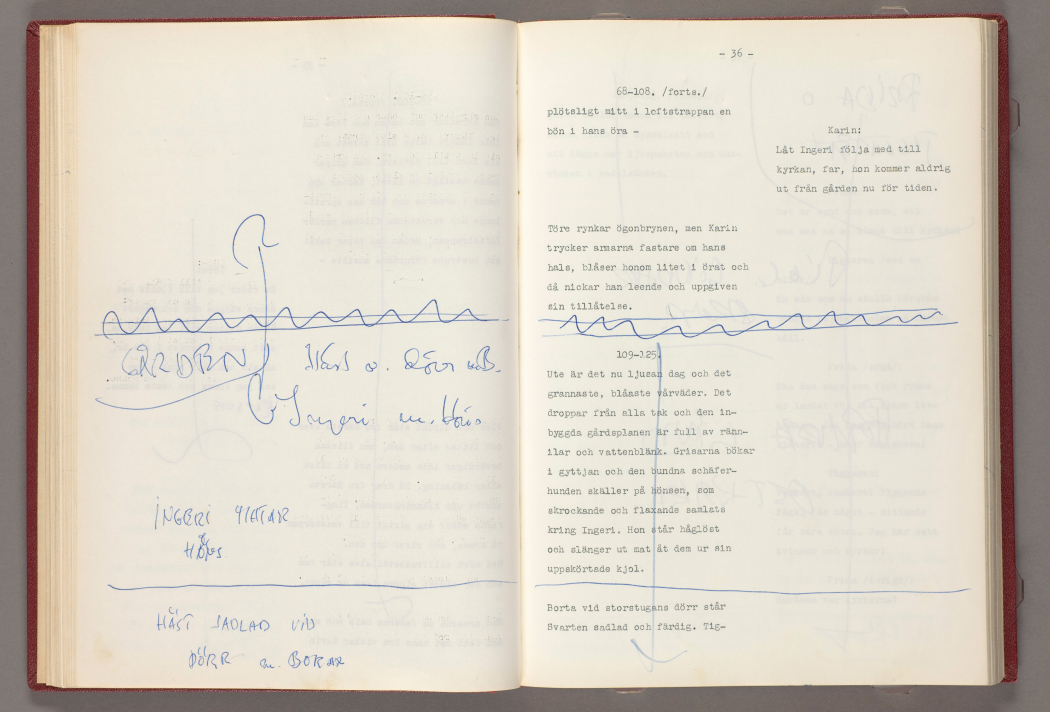 GÅRDEN
Ingeri m. höns
INGERI MATAR
HÖNS
HÄST SADLAD VID
DÖRR m. BORAR
- 36 -
68-108. /forts./
plötsligt mitt i loftstrappan en
bön i hans öra -
Karin:
Låt Ingeri följa med till
kyrkan, far, hon kommer aldrig
ut från gården nu för tiden.
Töre rynkar ögonbrynen, men Karin
trycker armarna fastare om hans
hals, blåser honom litet i örat och
då nickar han leende och uppgiven
sin tillåtelse.
109-125.
Ute är det nu ljusan dag och det
grannaste, blåaste vårväder. Det
droppar från alla tak och den in-
byggda gårdsplanen är full av ränn-
ilar och vattenblänk. Grisarna bökar
i gyttjan och den bundna schäfer-
hunden skäller på hönsen, som
skrockande och flaxande samlats
kring Ingeri. Hon står håglöst
och slänger ut mat åt dem ur sin
uppskörtade kjol.
Borta vid storstugans dörr står
Svarten sadlad och färdig. Tig-